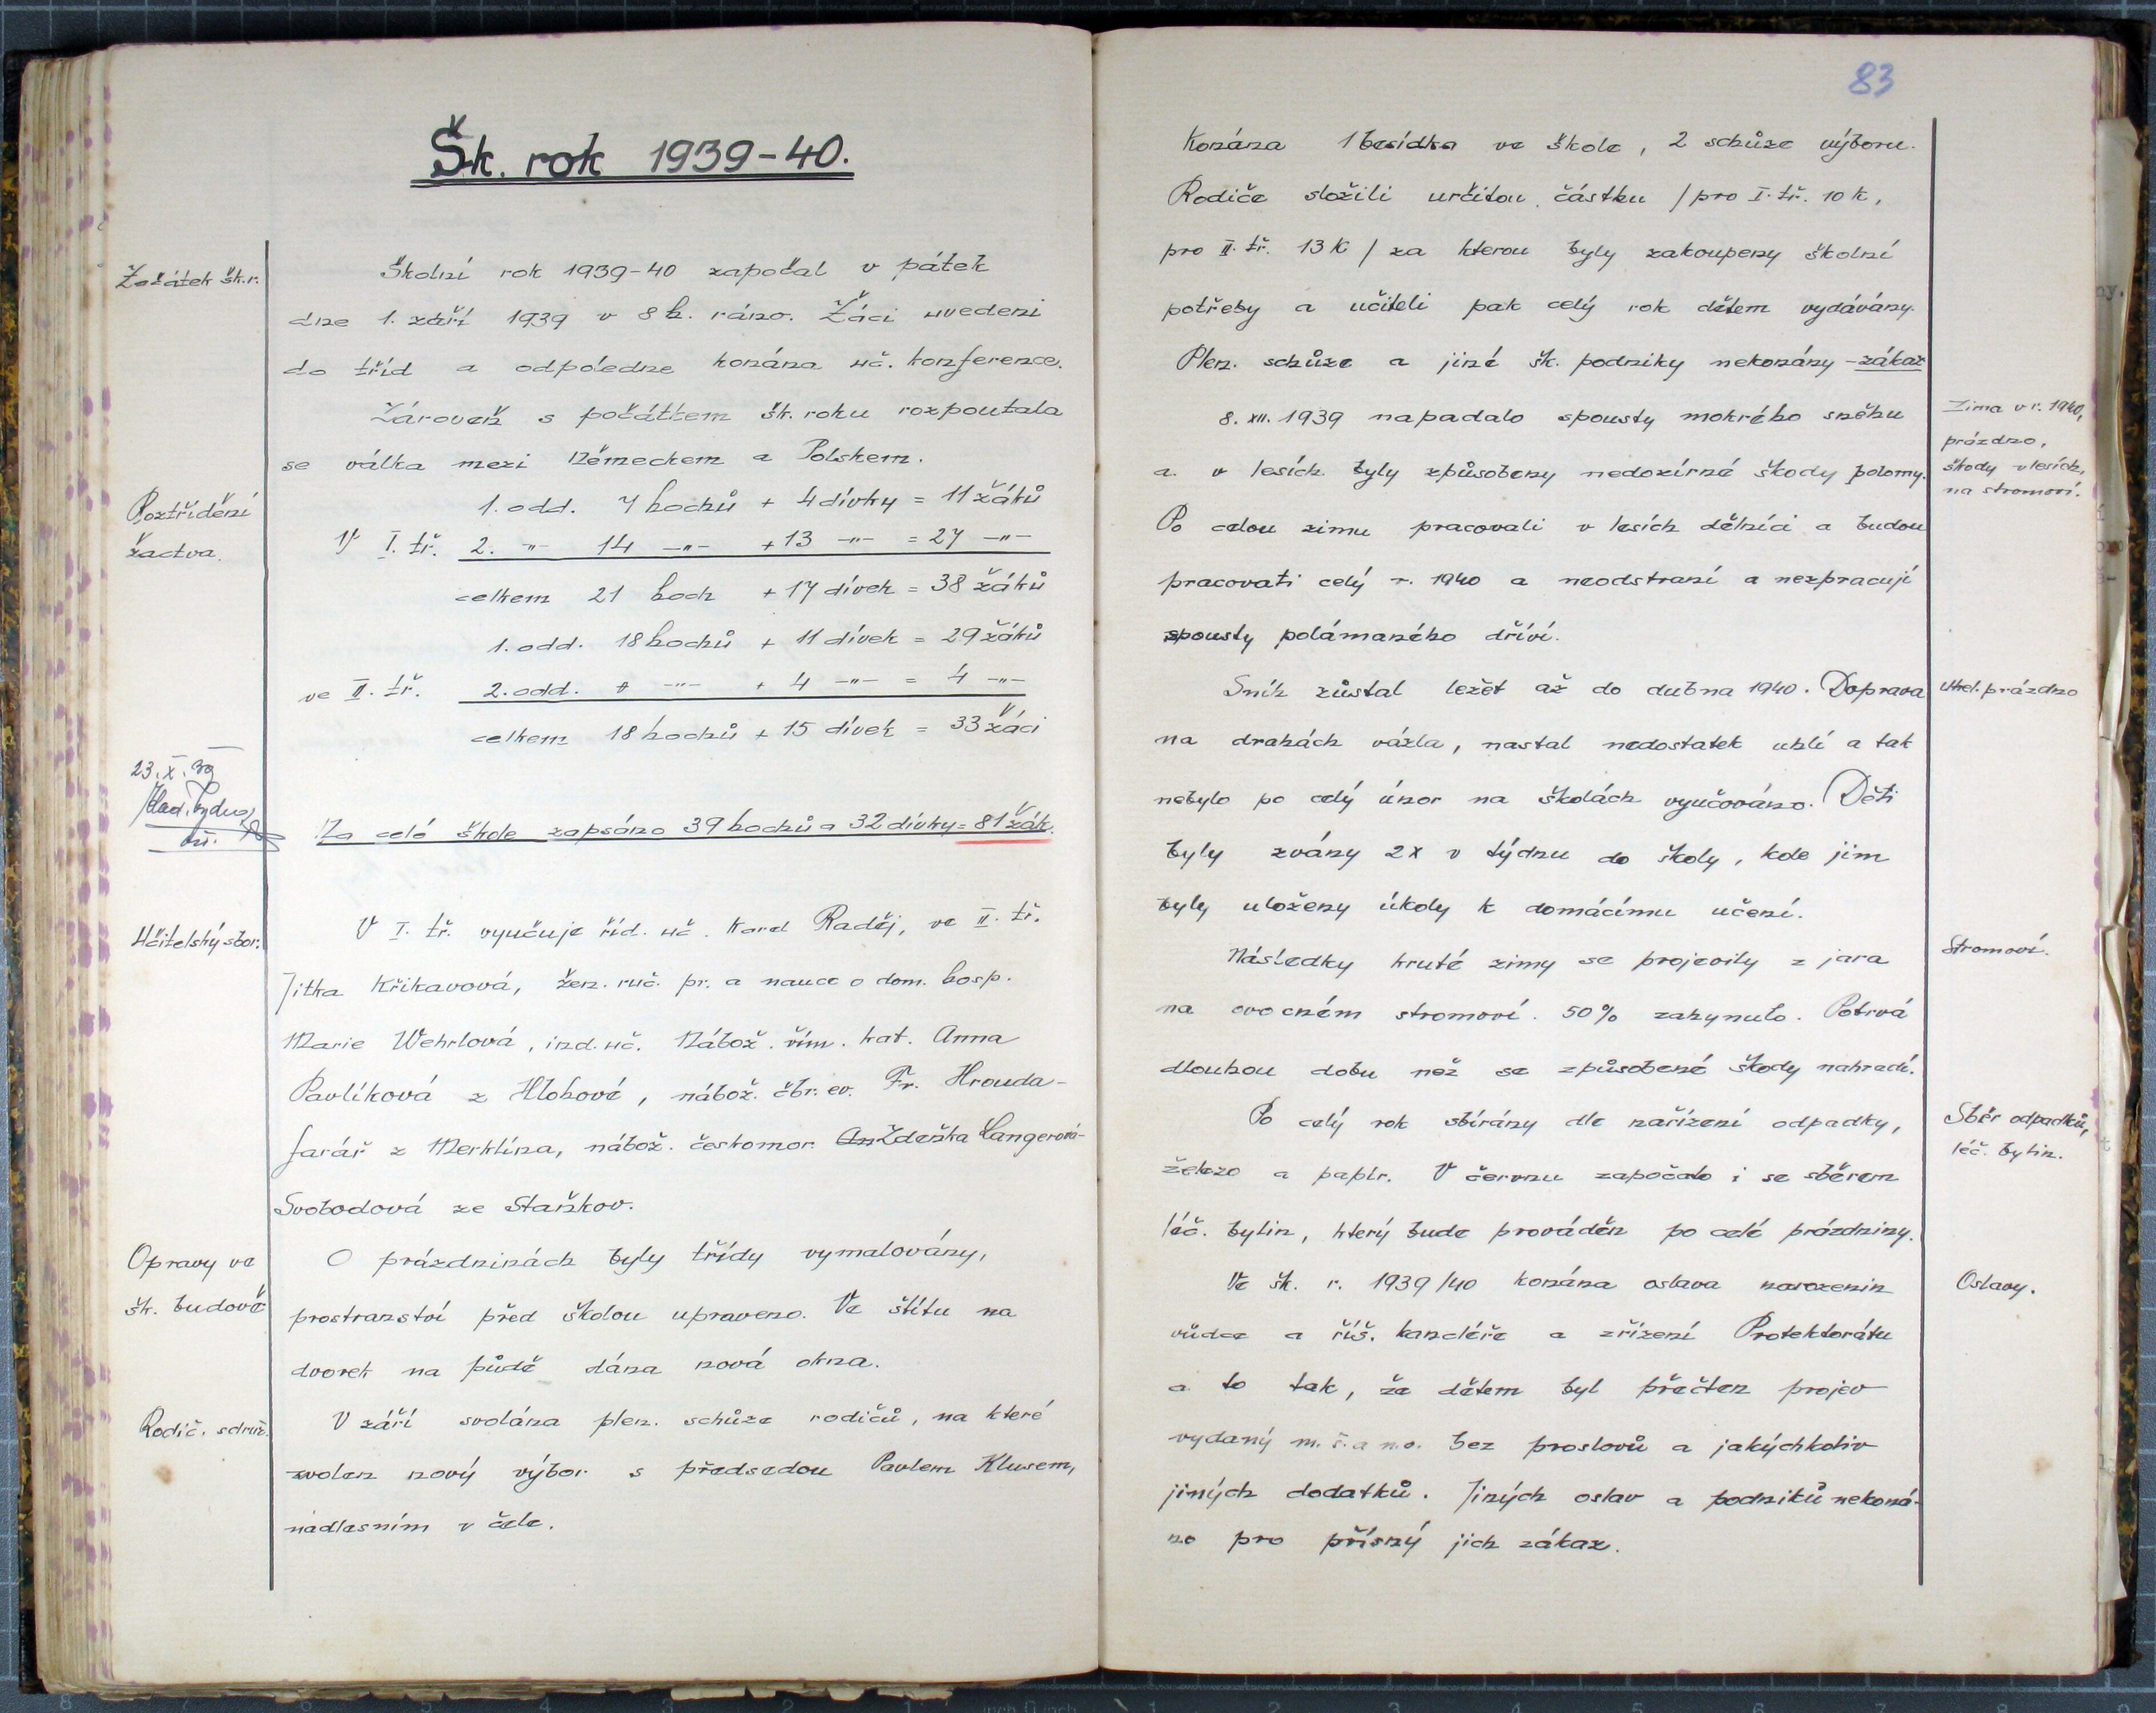 Šk. rok 1939-40.
Začátek šk.r.
Školní rok 1939-40 započal v pátek
dne 1. září 1939 v 8 h. ráno. Žáci uvedeni
do tříd a odpoledne konána uč. konference.
Zároveň s počátkem šk. roku rozpoutala
se válka mezi Německem a Polskem.
Roztřídění
žactva.
1. odd. 7 hochů + 4 dívky = 11 žáků
V I. tř. 2. -"- 14 -"- + 13 -"- = 27 -"-
celkem 21 hoch + 17 dívek = 38 žáků
1. odd. 18 hochů + 11 dívek = 29 žáků
ve II. tř. 2. odd. -"- + 4 -"- = 4 -"-
celkem 18 hochů + 15 dívek = 33 žáci
23. X. 39
Na celé škole zapsáno 39 hochů a 32 dívky = 81 žák.
Učitelský sbor.
V I. tř. vyučuje říd. uč. Karel Raděj, ve II. tř.
Jitka Křikavová, žen. ruč. pr. a nauce o dom. hosp.
Marie Wehrlová, ind. uč. Nábož. řím. kat. Anna
Pavlíková z Hlohové, nábož. čbr. ev. Fr. Hrouda-
farář z Merklína, nábož. českomor. An Zdeňka Langerová-
Svobodová ze Staňkov.
Opravy ve
šk. budově
O prázdninách byly třídy vymalovány,
prostranství před školou upraveno. Ve štítu na
dvorek na půdě dána nová okna.
Rodič. sdruž.
V září svolána plen. schůze rodičů, na které
zvolen nový výbor s předsedou Pavlem Klusem,
nadlesním v čele.
83
Konána 1 besídka ve škole, 2 schůze výboru.
Rodiče složili určitou částku /pro I. tř. 10 K,
pro II. tř. 13 K/ za kterou byly zakoupeny školní
potřeby a učiteli pak celý rok dětem vydávány.
Plen. schůze a jiné šk. podniky nekonány - zákaz
8. XII. 1939 napadalo spousty mokrého sněhu
a v lesích byly způsobeny nedozírné škody polomy.
Po celou zimu pracovali v lesích dělníci a budou
pracovati celý r. 1940 a neodstraní a nezpracují
spousty polámaného dříví.
Zima v r. 1940,
prázdno,
škody v lesích,
na stromoví.
Sníh zůstal ležet až do dubna 1940. Doprava
na drahách vázla, nastal nedostatek uhlí a tak
nebylo po celý únor na školách vyučováno. Děti
byly zvány 2x v týdnu do školy, kde jim
byly uloženy úkoly k domácímu učení.
Uhel. prázdno
Následky kruté zimy se projevily z jara
na ovocném stromoví. 50% zahynulo. Potrvá
dlouhou dobu než se způsobené škody nahradí.
Stromoví.
Po celý rok sbírány dle nařízení odpadky,
železo a papír. V červnu započato i se sběrem
léč. bylin, který bude prováděn po celé prázdniny.
Sběr odpadků,
léč. bylin.
Ve šk. r. 1939/40 konána oslava narozenin
vůdce a říš. kancléře a zřízení Protektorátu
a to tak, že dětem byl přečten projev
vydaný m. š. a n. o. bez proslovů a jakýchkoliv
jiných dodatků. Jiných oslav a podniků nekoná-
no pro přísný jich zákaz.
Oslavy.